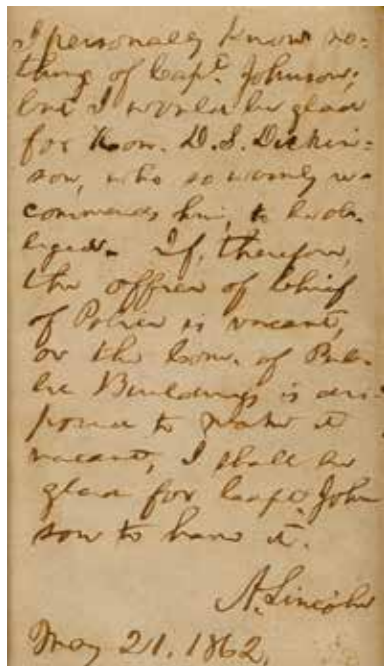 I personally know no-
thing of Capt. Johnson;
but I would be glad
for Hon. D. S. Dickin-
son, who so warmly re-
commends him, to be ob-
liged. If, therefore,
the office of Chief
of Police is vacant,
or the Com. of Pub-
lic Buildings is dis-
posed to make it
vacant, I shall be
glad for Capt. John
son to have it.
A. Lincoln
May 21. 1862.